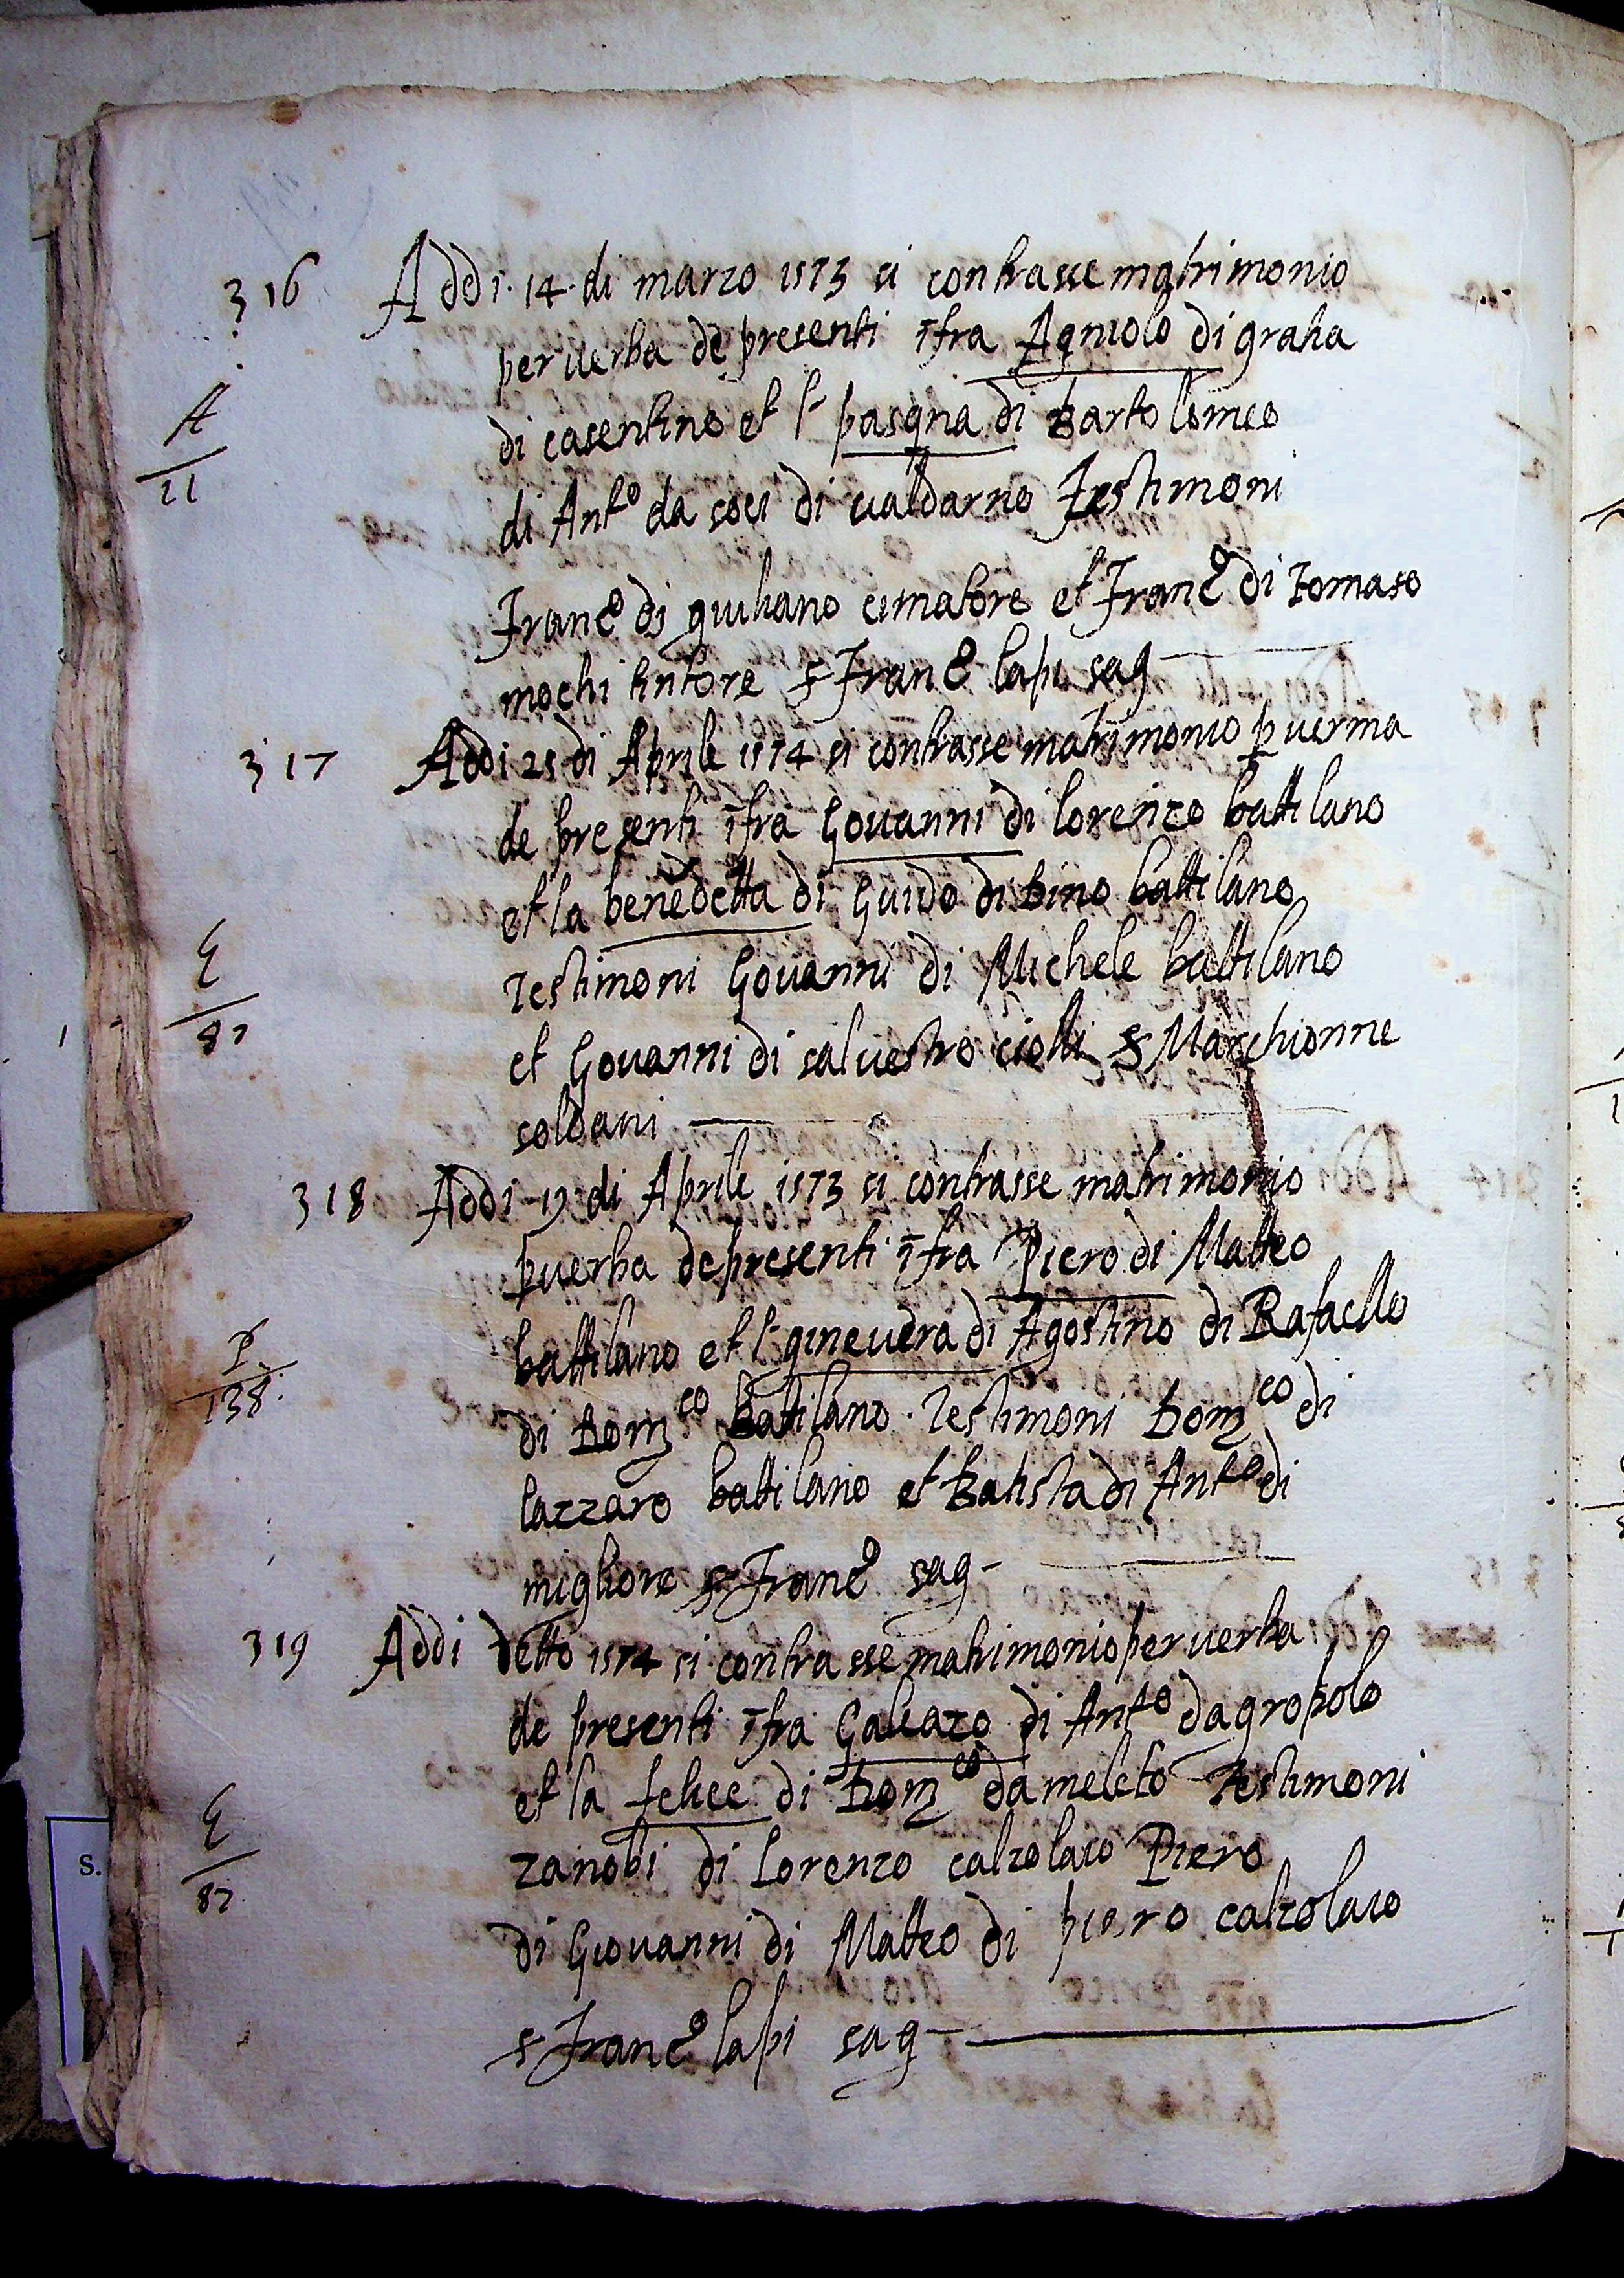 316 Addi 14 di marzo 1573 si contrasse matrimonio
per uerba de presenti ĩfra Agniolo di graħa
A
di casentino et lª pasqua di Bartolomeo
11
di Antº da soci di ualdarno Testimoni
Francº di giuliano cimatore et Francº di Tomaso
mochi tintore s Francº lapi sag
317 Addi 25 di Aprile 1574 si contrasse matrimonio p uerma
de presenti ĩfra Giouanni di lorenzo battilano
et la benedetta di Guido di Bino battilano
G
Testimoni Giouanni di Michele battilano
87
et Giouanni di saluestro ciolli s Marchionne
soldani
318 Addi 19 di Aprile 1573 si contrasse matrimonio
p uerba de presenti ĩfra Piero di Matteo
P
battilano et lª gineuera di Agostino di Rafaello
138
di Domco battilano Testimoni Domco di
lazzaro battilano et Batista di Antº di
migliore s Francº sag
319 Addi detto 1574 si contrasse matrimonio per uerba
de presenti ĩfra Galeazo di Antº da gropolo
et la felice di Domco da meleto Testimoni
G
zanobi di Lorenzo calzolaio Piero
87
di Giouanni di Matteo di piero calzolaio
s Francº lapi sag
S.